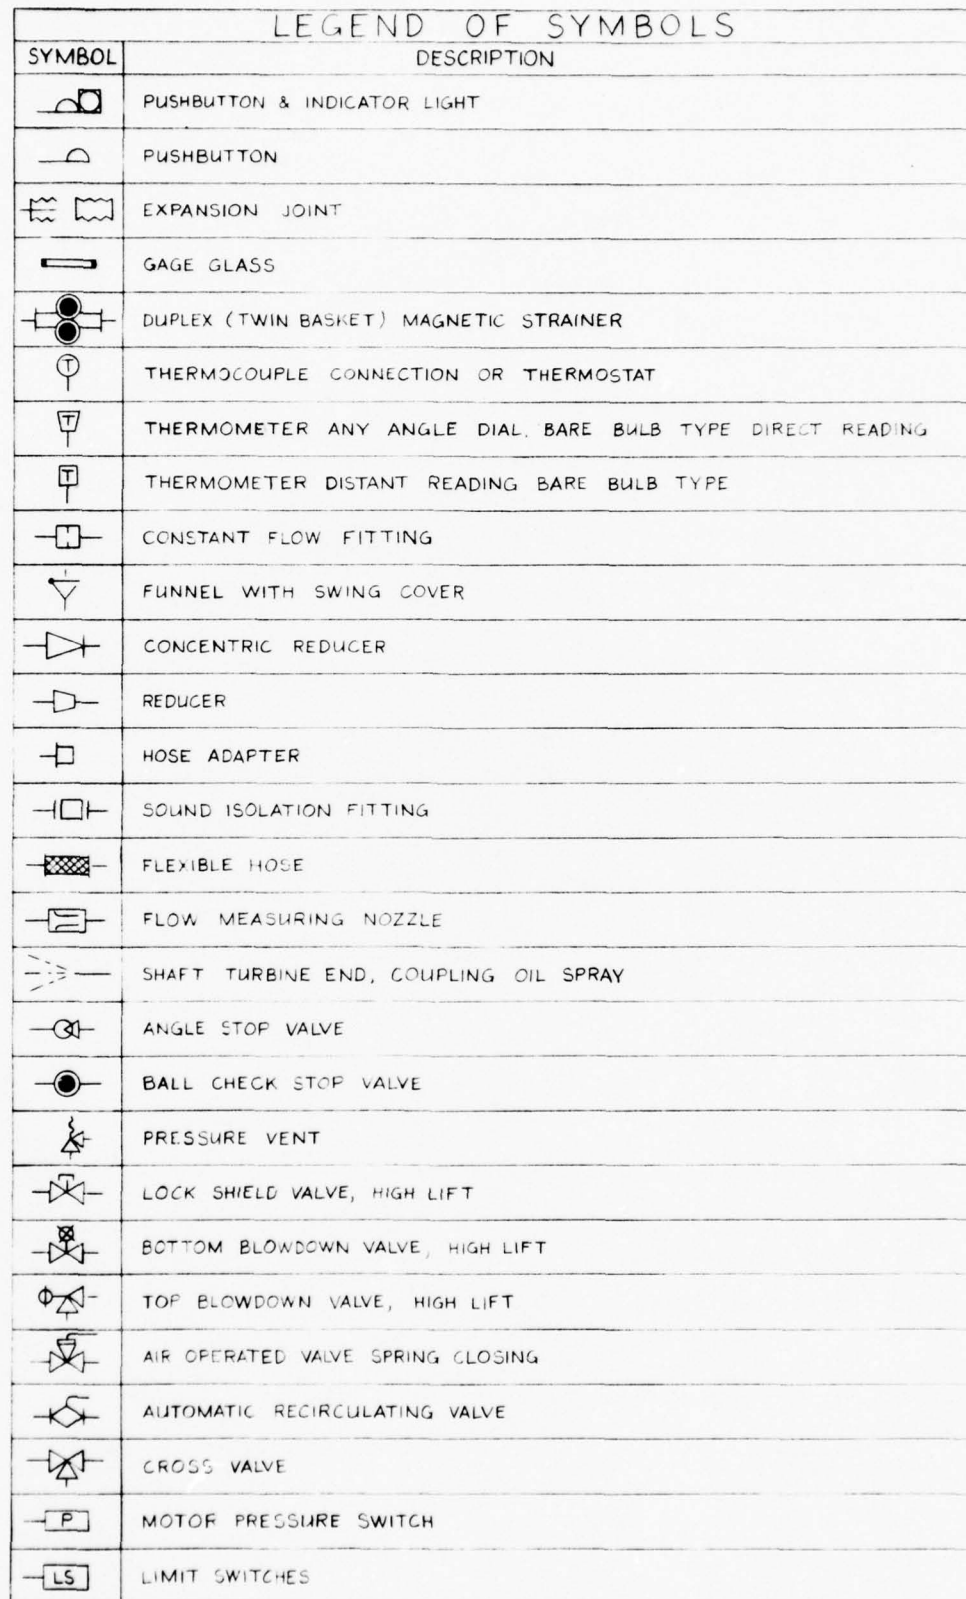 LEGEND OF SYMBOLS
SYMBOL DESCRIPTION
PUSHBUTTON & INDICATOR LIGHT
PUSHBUTTON
EXPANSION JOINT
GAGE GLASS
DUPLEX (TWIN BASKET) MAGNETIC STRAINER
T THERMOCOUPLE CONNECTION OR THERMOSTAT
T THERMOMETER ANY ANGLE DIAL. BARE BULB TYPE DIRECT READING
T THERMOMETER DISTANT READING BARE BULB TYPE
CONSTANT FLOW FITTING
FUNNEL WITH SWING COVER
CONCENTRIC REDUCER
REDUCER
HOSE ADAPTER
SOUND ISOLATION FITTING
FLEXIBLE HOSE
FLOW MEASURING NOZZLE
SHAFT TURBINE END, COUPLING OIL SPRAY
ANGLE STOP VALVE
BALL CHECK STOP VALVE
PRESSURE VENT
LOCK SHIELD VALVE, HIGH LIFT
BOTTOM BLOWDOWN VALVE, HIGH LIFT
TOP BLOWDOWN VALVE, HIGH LIFT
AIR OPERATED VALVE SPRING CLOSING
AUTOMATIC RECIRCULATING VALVE
CROSS VALVE
P MOTOR PRESSURE SWITCH
LS LIMIT SWITCHES